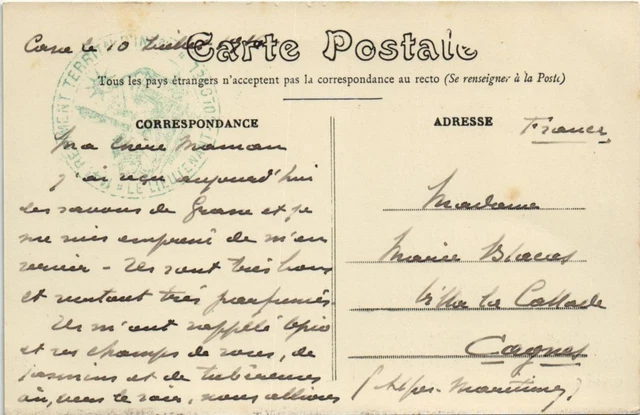 le 10 Juillet
Carte Postale
Tous les pays étrangers n'acceptent pas la correspondance au recto (Se renseigner à la Poste)
CORRESPONDANCE
ADRESSE
France
Ma chère Maman
J'ai reçu aujourd'hui
des savons de Grasse et je
me suis empressé de m'en
servir - Ils sont très bons
et surtout très parfumés.
Ils m'ont rappelé Opio
et ses champs de roses, de
jasmins et de tubéreuses
où, vers le soir, nous allions
Madame
Marie
Villa La
Cagnes
(Alpes-Maritimes)
REGIMENT TERRITORIAL
LE LIEUTENANT